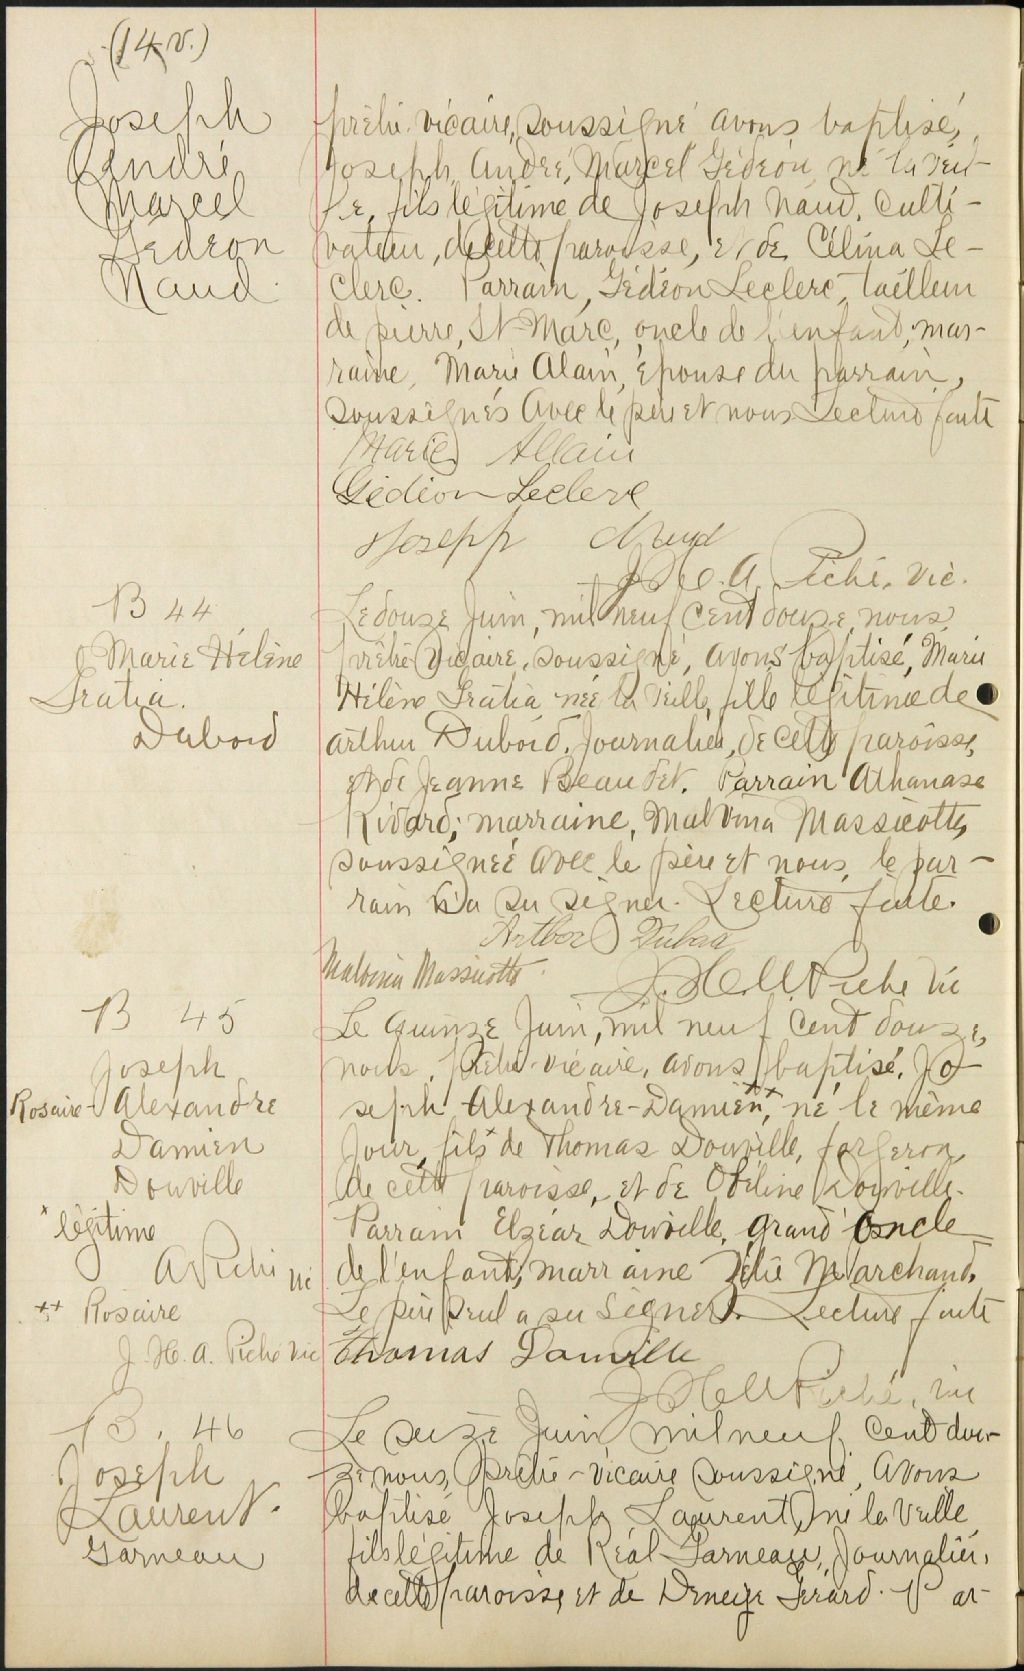 (14 v.)
Joseph
André
Marcel
Gédéon
Naud
prêtre vicaire, soussigné avons baptisé,
Joseph, André, Marcel Gédéon, né la veil-
le, fils légitime de Joseph Naud, culti-
vateur, de cette paroisse, et de Célina Le-
clerc. Parrain, Gédéon Leclerc, tailleur
de pierre, St Marc, oncle de l'enfant, mar-
raine, Marie Alain, épouse du parrain,
soussignés avec le père et nous Lecture faite
Marie Allain
Gédéon Leclerc
Joseph Naud
J. H. A. Piché, vic.
B 44
Marie Hélène
Gratia.
Dubord
Le douze Juin, mil neuf cent douze, nous
prêtre vicaire, soussigné, avons baptisé, Marie
Hélène Gratia née la veille, fille légitime de
Arthur Dubord, journalier, de cette paroisse,
et de Jeanne Beaudet. Parrain Athanase
Rivard; marraine, Malvina Massicotte,
soussignée avec le père et nous, le par-
rain n'a su signer. Lecture faite.
Arthur
Malvina Massicotte
J. H. A. Piché vic
B 45
Joseph
Rosaire - Alexandre
Damien
Douville
x légitime
A Piché vic
xx Rosaire
J. H. A. Piché vic
Le quinze Juin, mil neuf cent douze,
nous, prêtre-vicaire, avons baptisé, Jo-
seph Alexandre-Damien,xx né le même
jour, filsx de Thomas Douville, forgeron,
de cette paroisse, et de Obéline Douville.
Parrain Elzéar Douville, grand oncle
de l'enfant, marraine Zélie Marchand.
Le père seul a su signer. Lecture faite
Thomas Douville
J H A Piché, vic
B. 46
Joseph
Laurent.
Garneau
Le seize Juin mil neuf cent dou-
ze, nous, prêtre-vicaire soussigné, avons
baptisé Joseph Laurent, né la veille,
fils légitime de Réal Garneau, journalier,
de cette paroisse, et de Deneige Gérard. Par-